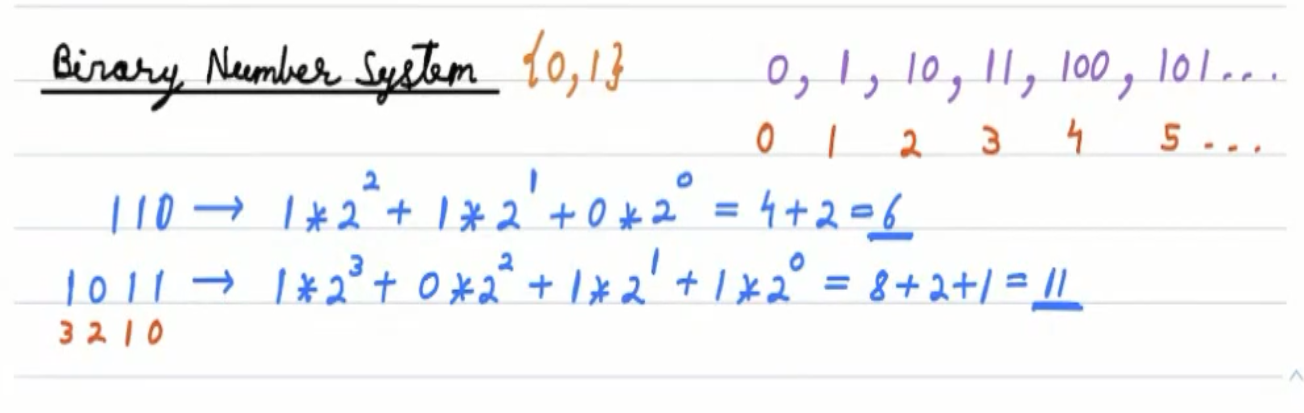 Binary Number System {0,1} 0, 1, 10, 11, 100, 101...
0 1 2 3 4 5...
110 → 1*2² + 1*2¹ + 0*2⁰ = 4+2=6
1011 → 1*2³ + 0*2² + 1*2¹ + 1*2⁰ = 8+2+1=11
3210